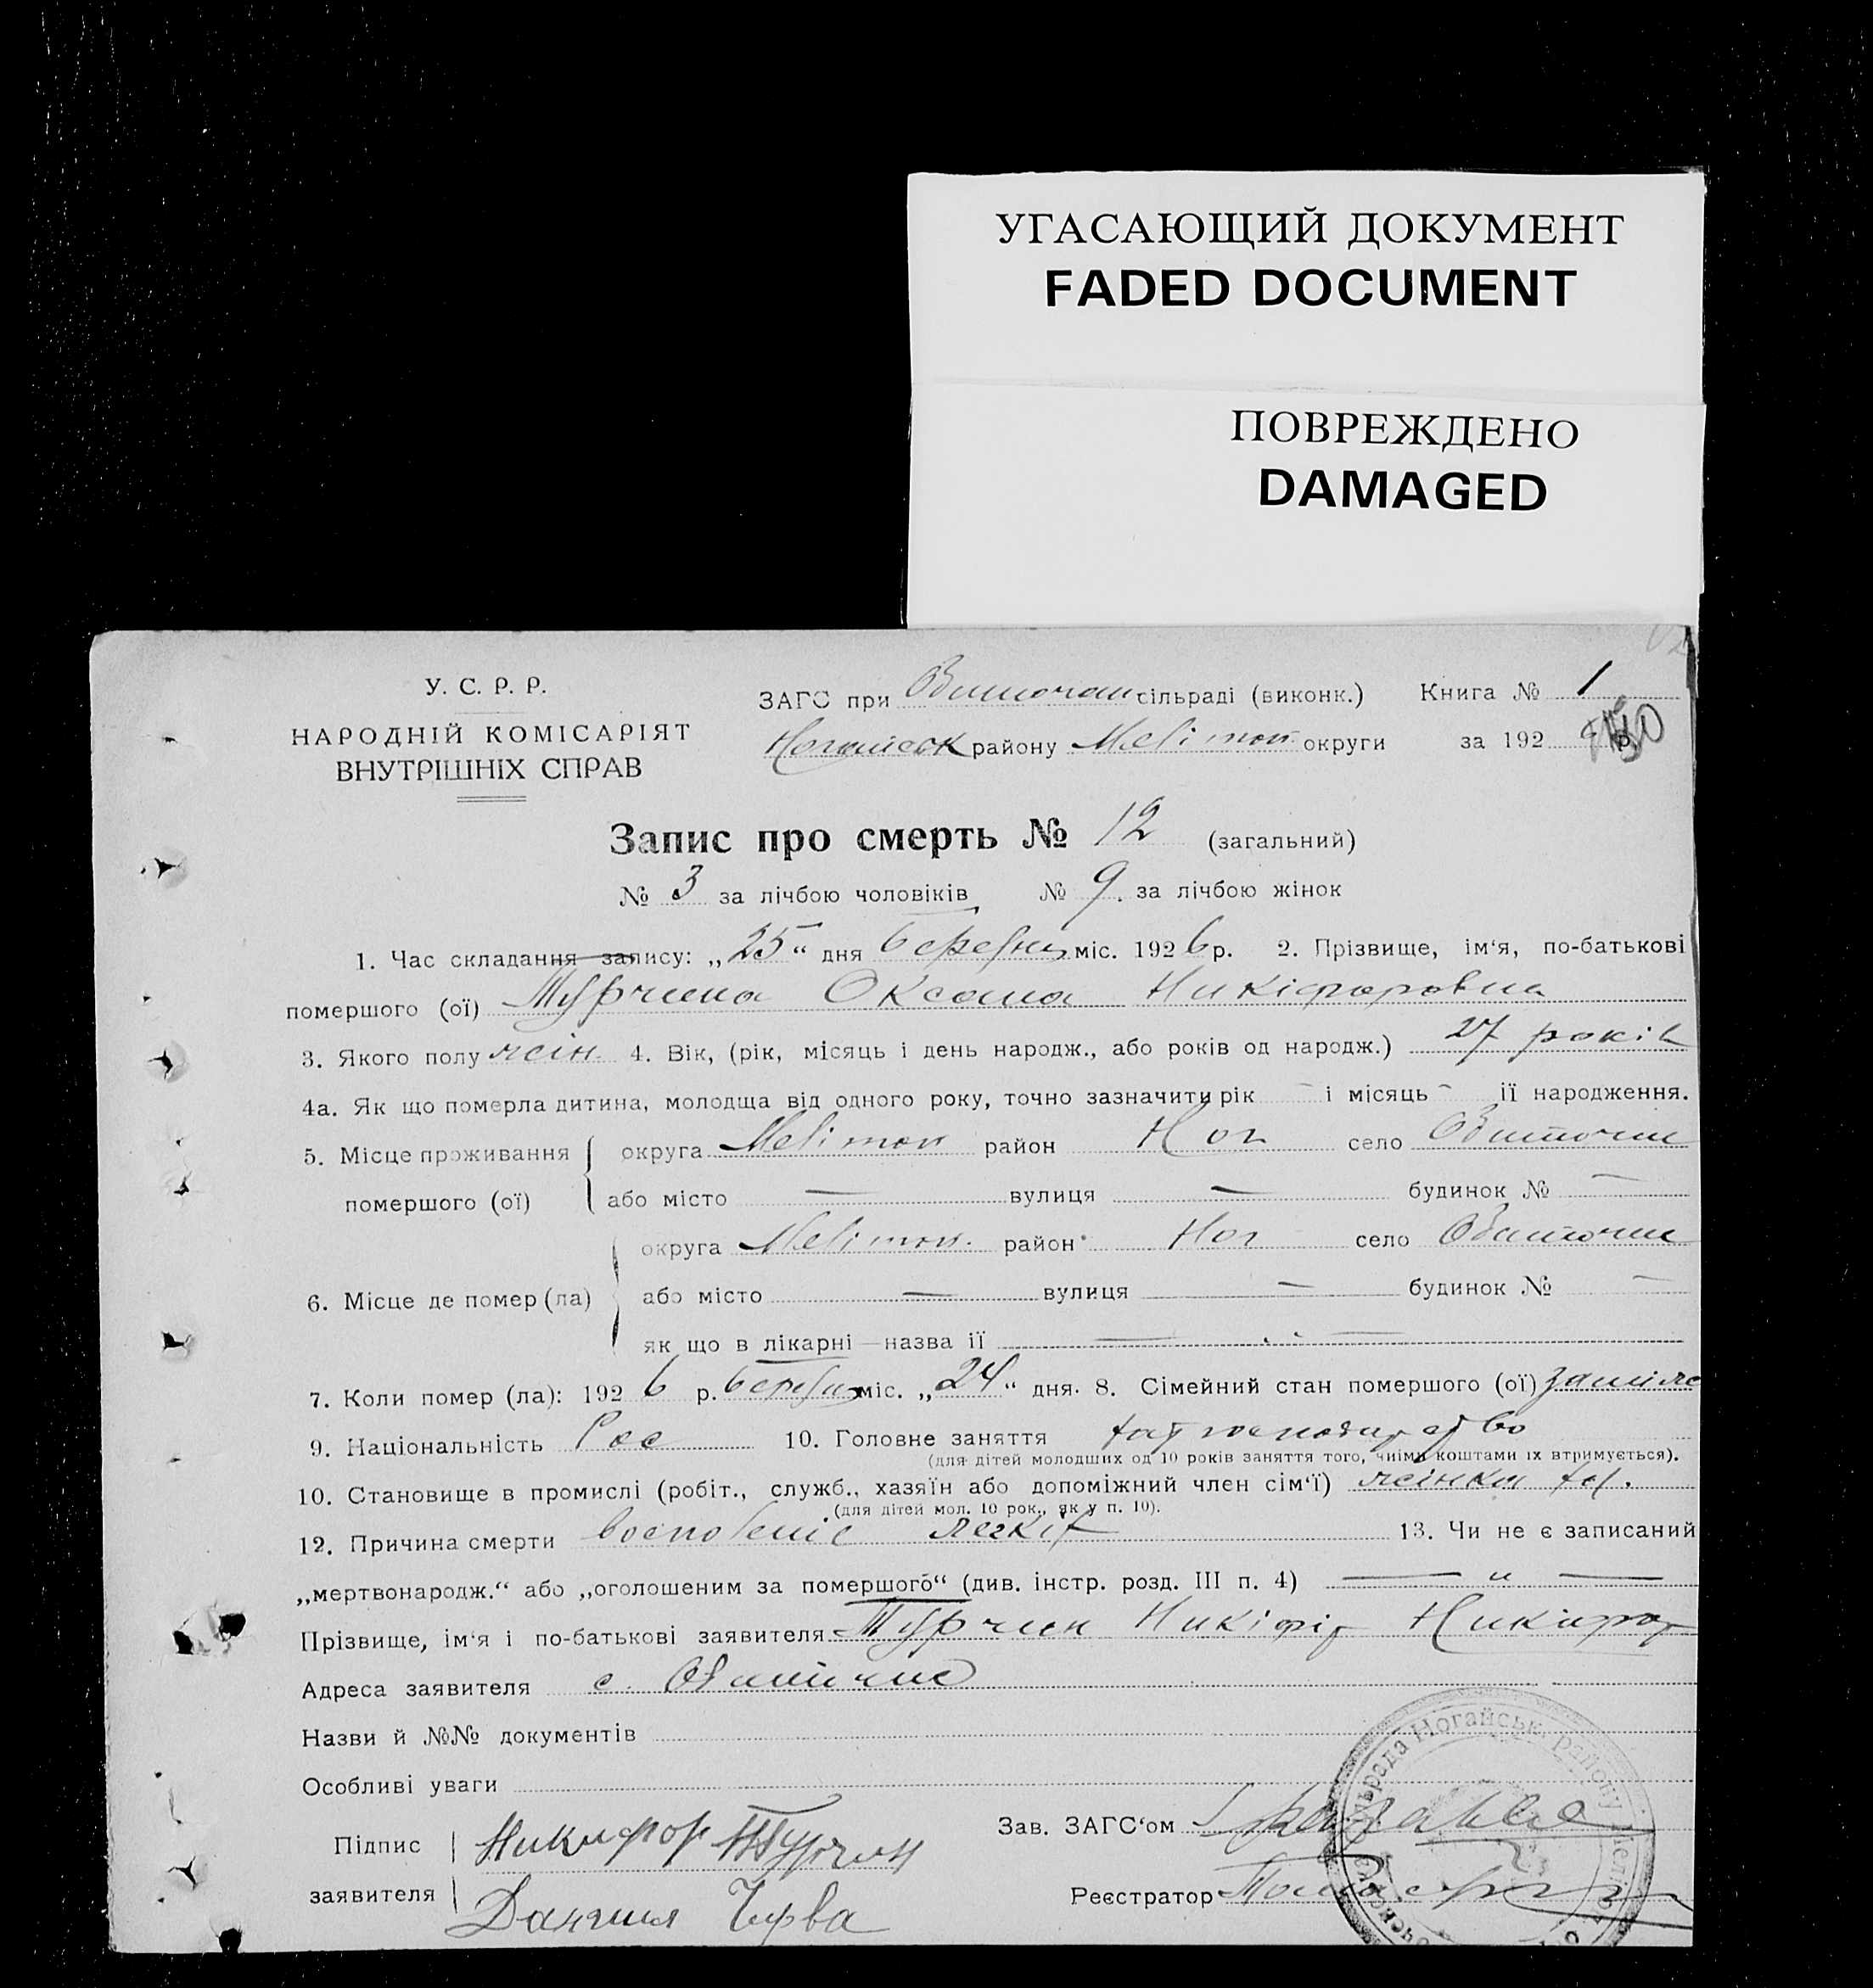 УГАСАЮЩИЙ ДОКУМЕНТ
FADED DOCUMENT
ПОВРЕЖДЕНО
DAMAGED
У. С. Р. Р.
НАРОДНІЙ КОМІСАРІЯТ
ВНУТРІШНІХ СПРАВ
ЗАГС при сільраді (виконк.) Книга № 1
Ногайськ району Мелітоп округи за 192 р.
Запис про смерть № 12 (загальний)
№ 3 за лічбою чоловіків № 9. за лічбою жінок
1. Час складання запису: „25“ дня березня міс. 1926 р. 2. Прізвище, ім‘я, по-батькові
помершого (ої) Турчина Оксана Никіфоровна
3. Якого полу жін. 4. Вік, (рік, місяць і день народж., або років од народж.) 27 років
4а. Як що померла дитина, молодша від одного року, точно зазначити рік – і місяць – її народження.
5. Місце проживання округа Мелітоп район Ног село Обиточне
помершого (ої) або місто — вулиця — будинок № —
округа Мелітоп. район Ног село Обиточне
6. Місце де помер (ла) або місто — вулиця — будинок № —
як що в лікарні — назва її —
7. Коли помер (ла): 1926 р. березня міс. „24“ дня. 8. Сімейний стан помершого (ої) заміж
9. Національність Рос 10. Головне заняття
(для дітей молодших од 10 років заняття того, чиїми коштами їх втримується).
10. Становище в промислі (робіт., служб., хазяїн або допоміжний член сім‘ї) жінка
(для дітей мол. 10 рок., як у п. 10).
12. Причина смерти легких 13. Чи не є записаний
„мертвонародж.“ або „оголошеним за помершого“ (див. інстр. розд. III п. 4) — „ —
Прізвище, ім‘я і по-батькові заявителя Турчин Никіфір Никіфор
Адреса заявителя с. Обиточне
Назви й №№ документів
Особливі уваги
Підпис Никифор Турчин
заявителя Чирва
Зав. ЗАГС‘ом
Реєстратор
Ногайськ району